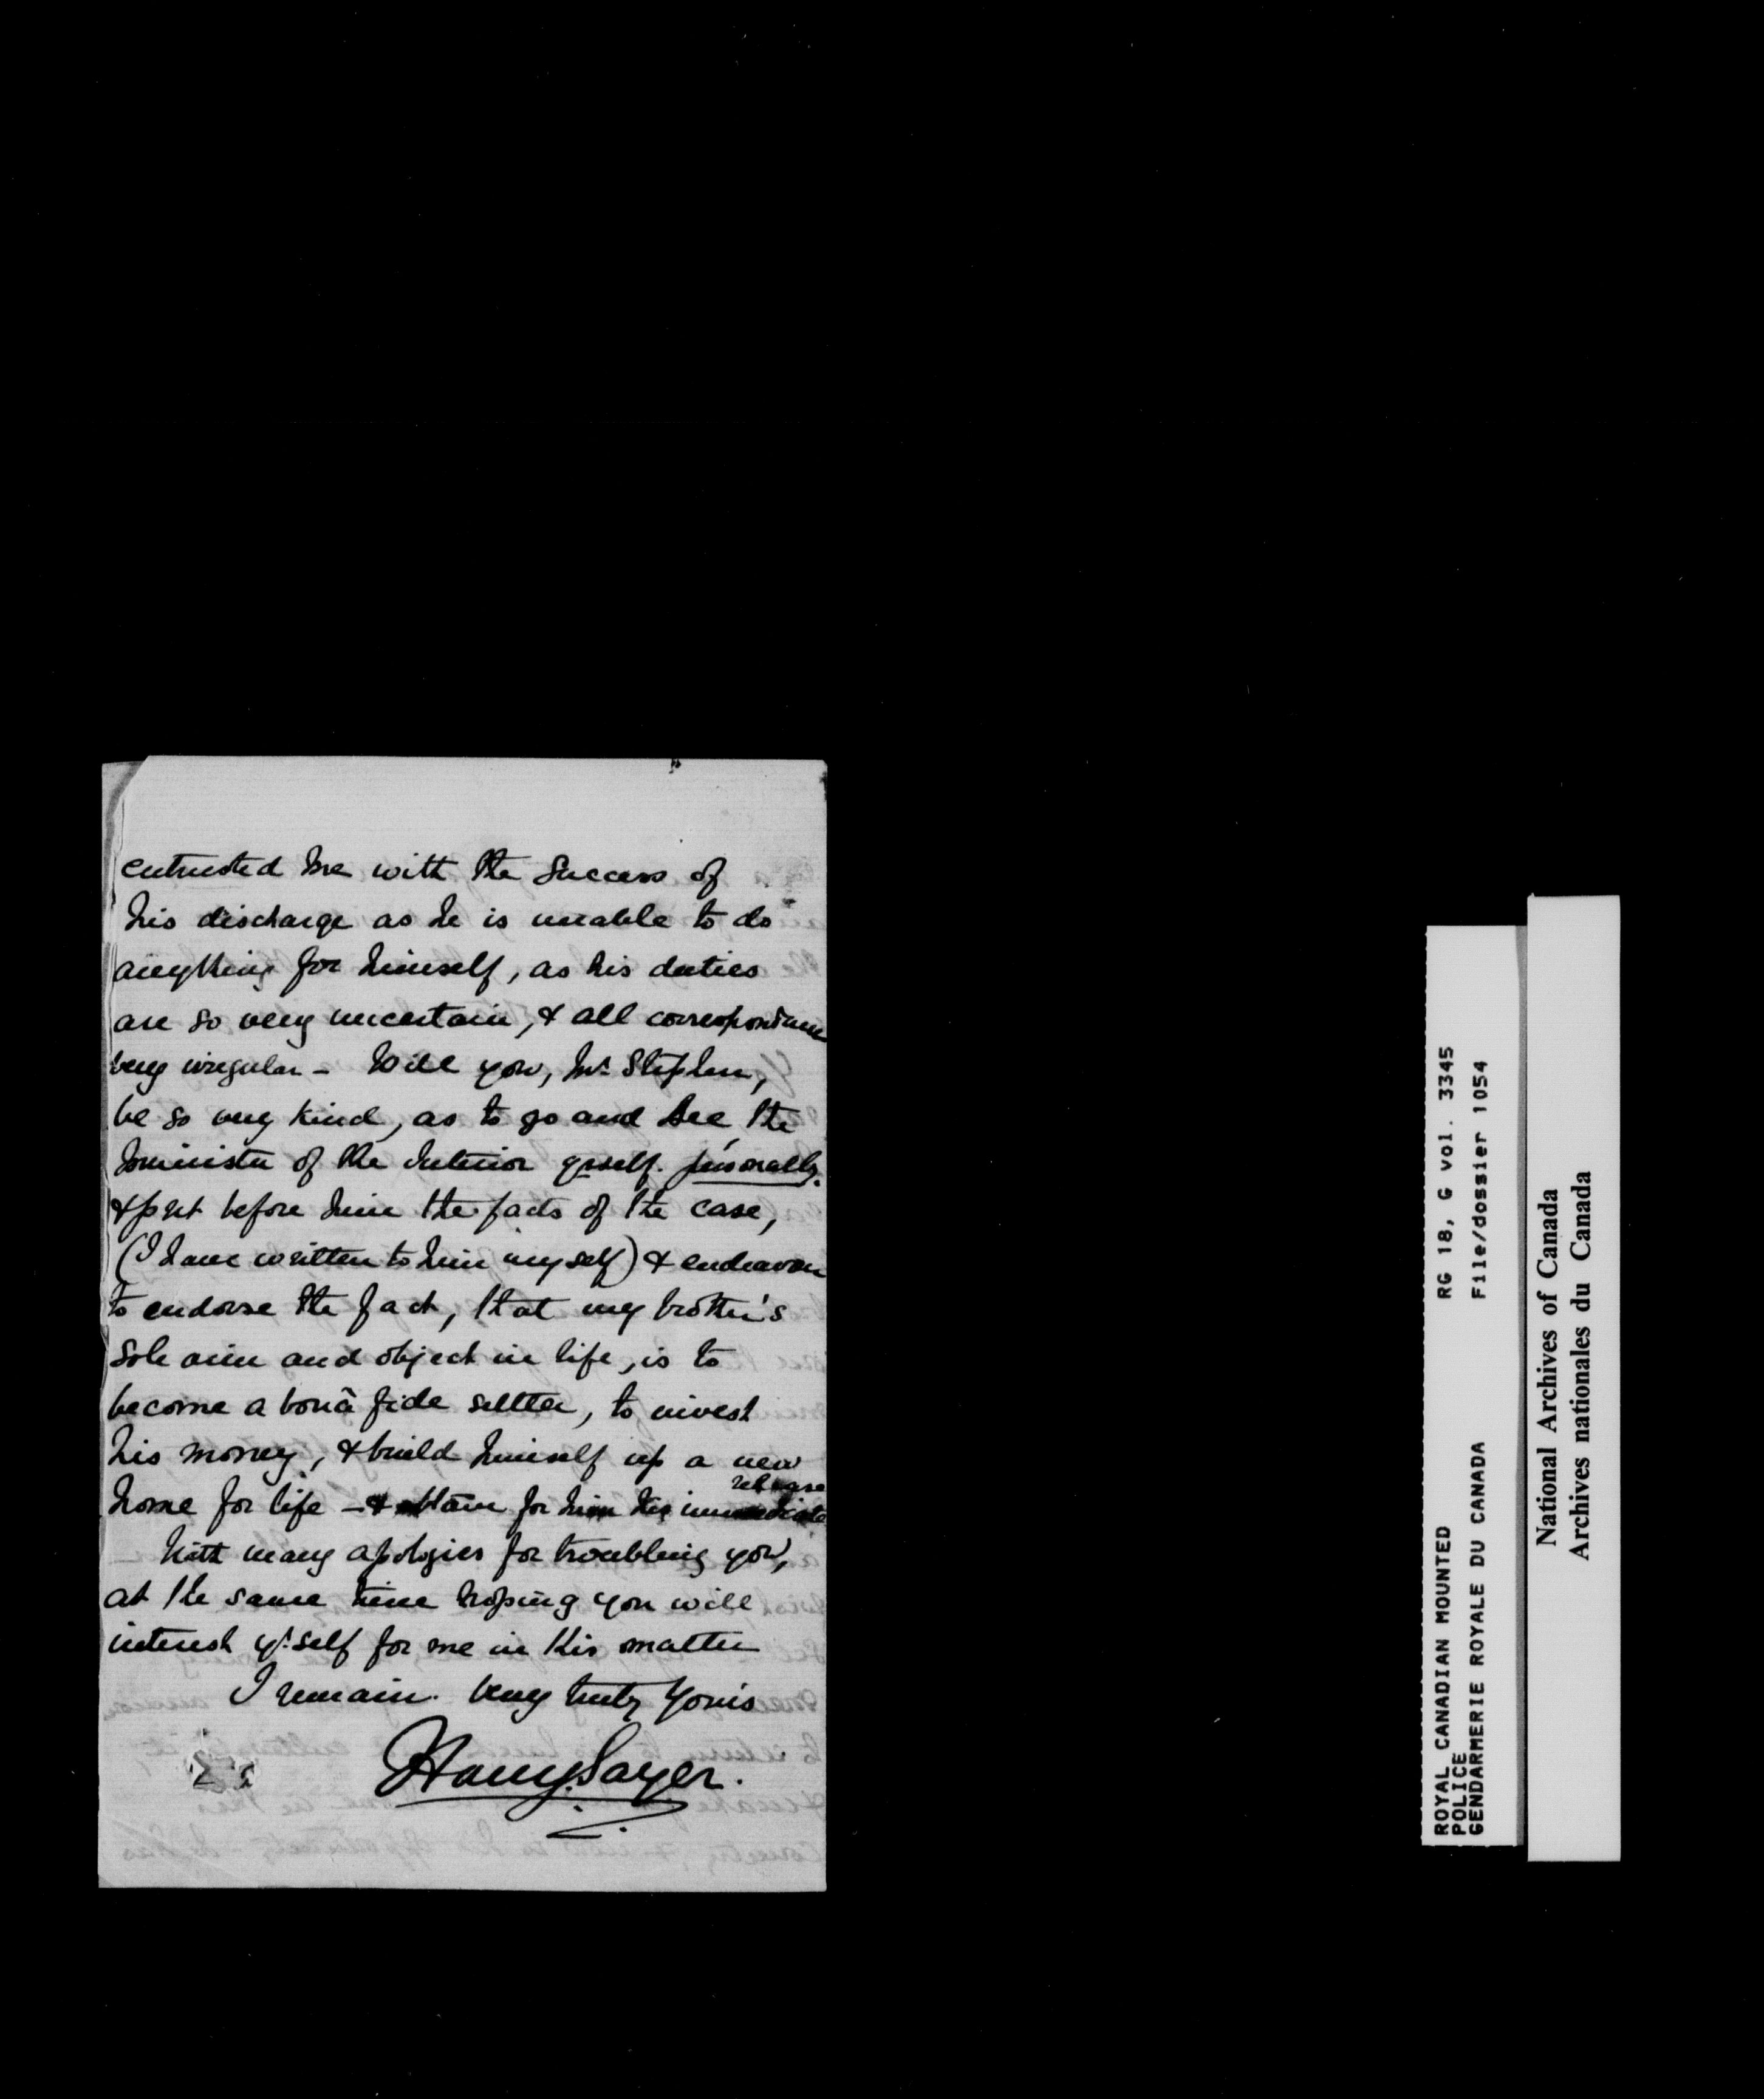 entrusted me with the success of
his discharge as he is unable to do
anything for himself, as his duties
are so very uncertain, & all correspondence
very irregular - Will you, Mr. Stephen,
be so very kind, as to go and see the
Minister of the Interior yrself. personally.
& put before him the facts of the case,
(I have written to him myself) & endeavour
to endorse the fact, that my brother's
sole aim and object in life, is to
become a bonâ fide settler, to invest
his money, & build himself up a new
home for life - & obtain for him his immediate
release
With many apologies for troubling you,
at the same time hoping you will
interest yr.self for me in this matter
I remain. Very truly Yours
Harry Sayer.
ROYAL CANADIAN MOUNTED RG 18, G vol. 3345
POLICE
GENDARMERIE ROYALE DU CANADA File/dossier 1054
National Archives of Canada
Archives nationales du Canada